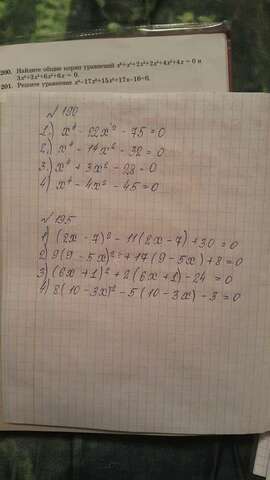 200. Найдите общие корни уравнений x⁵+x⁴+2x³+2x²+4x²+4x = 0 и
3x⁴+2x³+6x²+6x = 0.
201. Решите уравнение x⁴−17x³+15x²+17x−16=0.
№ 190
1) x⁴ − 22x² − 75 = 0
2) x⁴ − 14x² − 32 = 0
3) x⁴ + 3x² − 28 = 0
4) x⁴ − 4x² − 45 = 0
№ 195
1) (2x − 7)² − 11(2x − 7) + 30 = 0
2) 9(9 − 5x)² + 17(9 − 5x) + 8 = 0
3) (6x + 1)² + 2(6x + 1) − 24 = 0
4) 2(10 − 3x)² − 5(10 − 3x) − 3 = 0